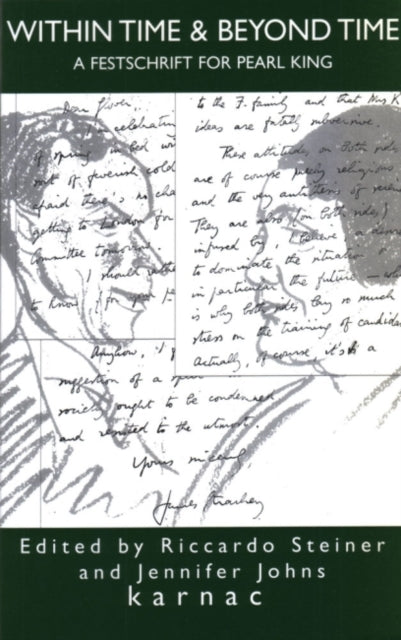 WITHIN TIME & BEYOND TIME
A FESTSCRIFT FOR PEARL KING
Dear Glover,
I'm celebrating
of spring in bed
sort of feverish cold
afraid there's no
getting to London for
Committee tomorrow.
I should
to know (for
to the F. family and that Mrs K
ideas are fatally subversive.
These attitudes on both sides
are of course purely religious
and the very antithesis of
They are also (on both sides)
infused by, I believe a
to dominate the situation
in particular the future —
is why both sides lay so much
stress on the training of
Actually, of course, it's a
Anyhow,
suggestion of a
society ought to be condemned
and resisted to the utmost.
Yours
James Strachey
Edited by Riccardo Steiner
and Jennifer Johns
karnac